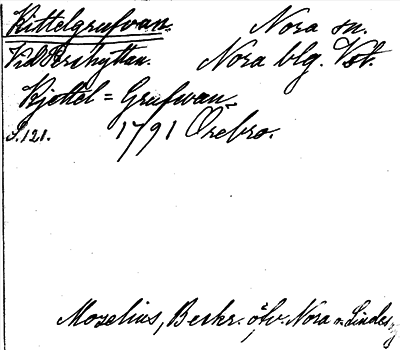 Kittelgrufvan. Nora sn.
Vid Pershyttan. Nora blg. Vst.
Kjettel = Grufvan.
S. 121. 1791 Örebro.
Mozelius, Beskr. öfv. Nora o. Lindes